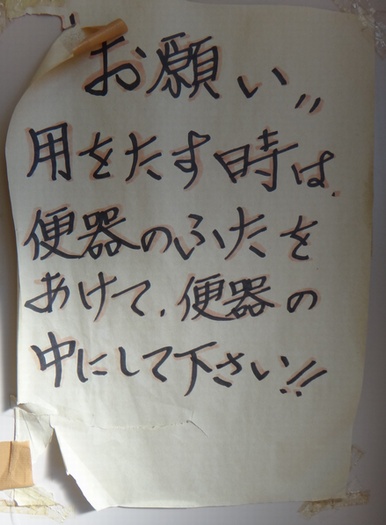 お願い〃
用をたす時は、
便器のふたを
あけて、便器の
中にして下さい!!